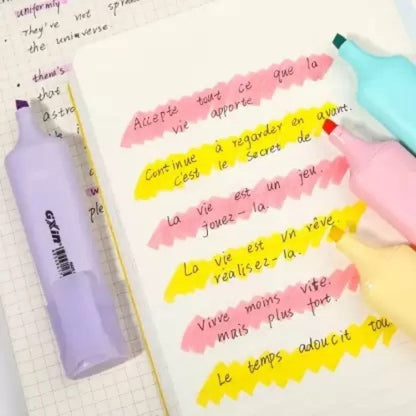 uniformly
• They've not spread
the universe.
• there's
that
astro
ple
GXin
Accepte tout ce que la
vie apporte
Continue à regarder en avant.
c'est le secret de
La vie est un jeu.
jouez-la.
La vie est un rêve.
réalisez-la.
Vivre moins vite.
mais plus fort.
Le temps adoucit tou